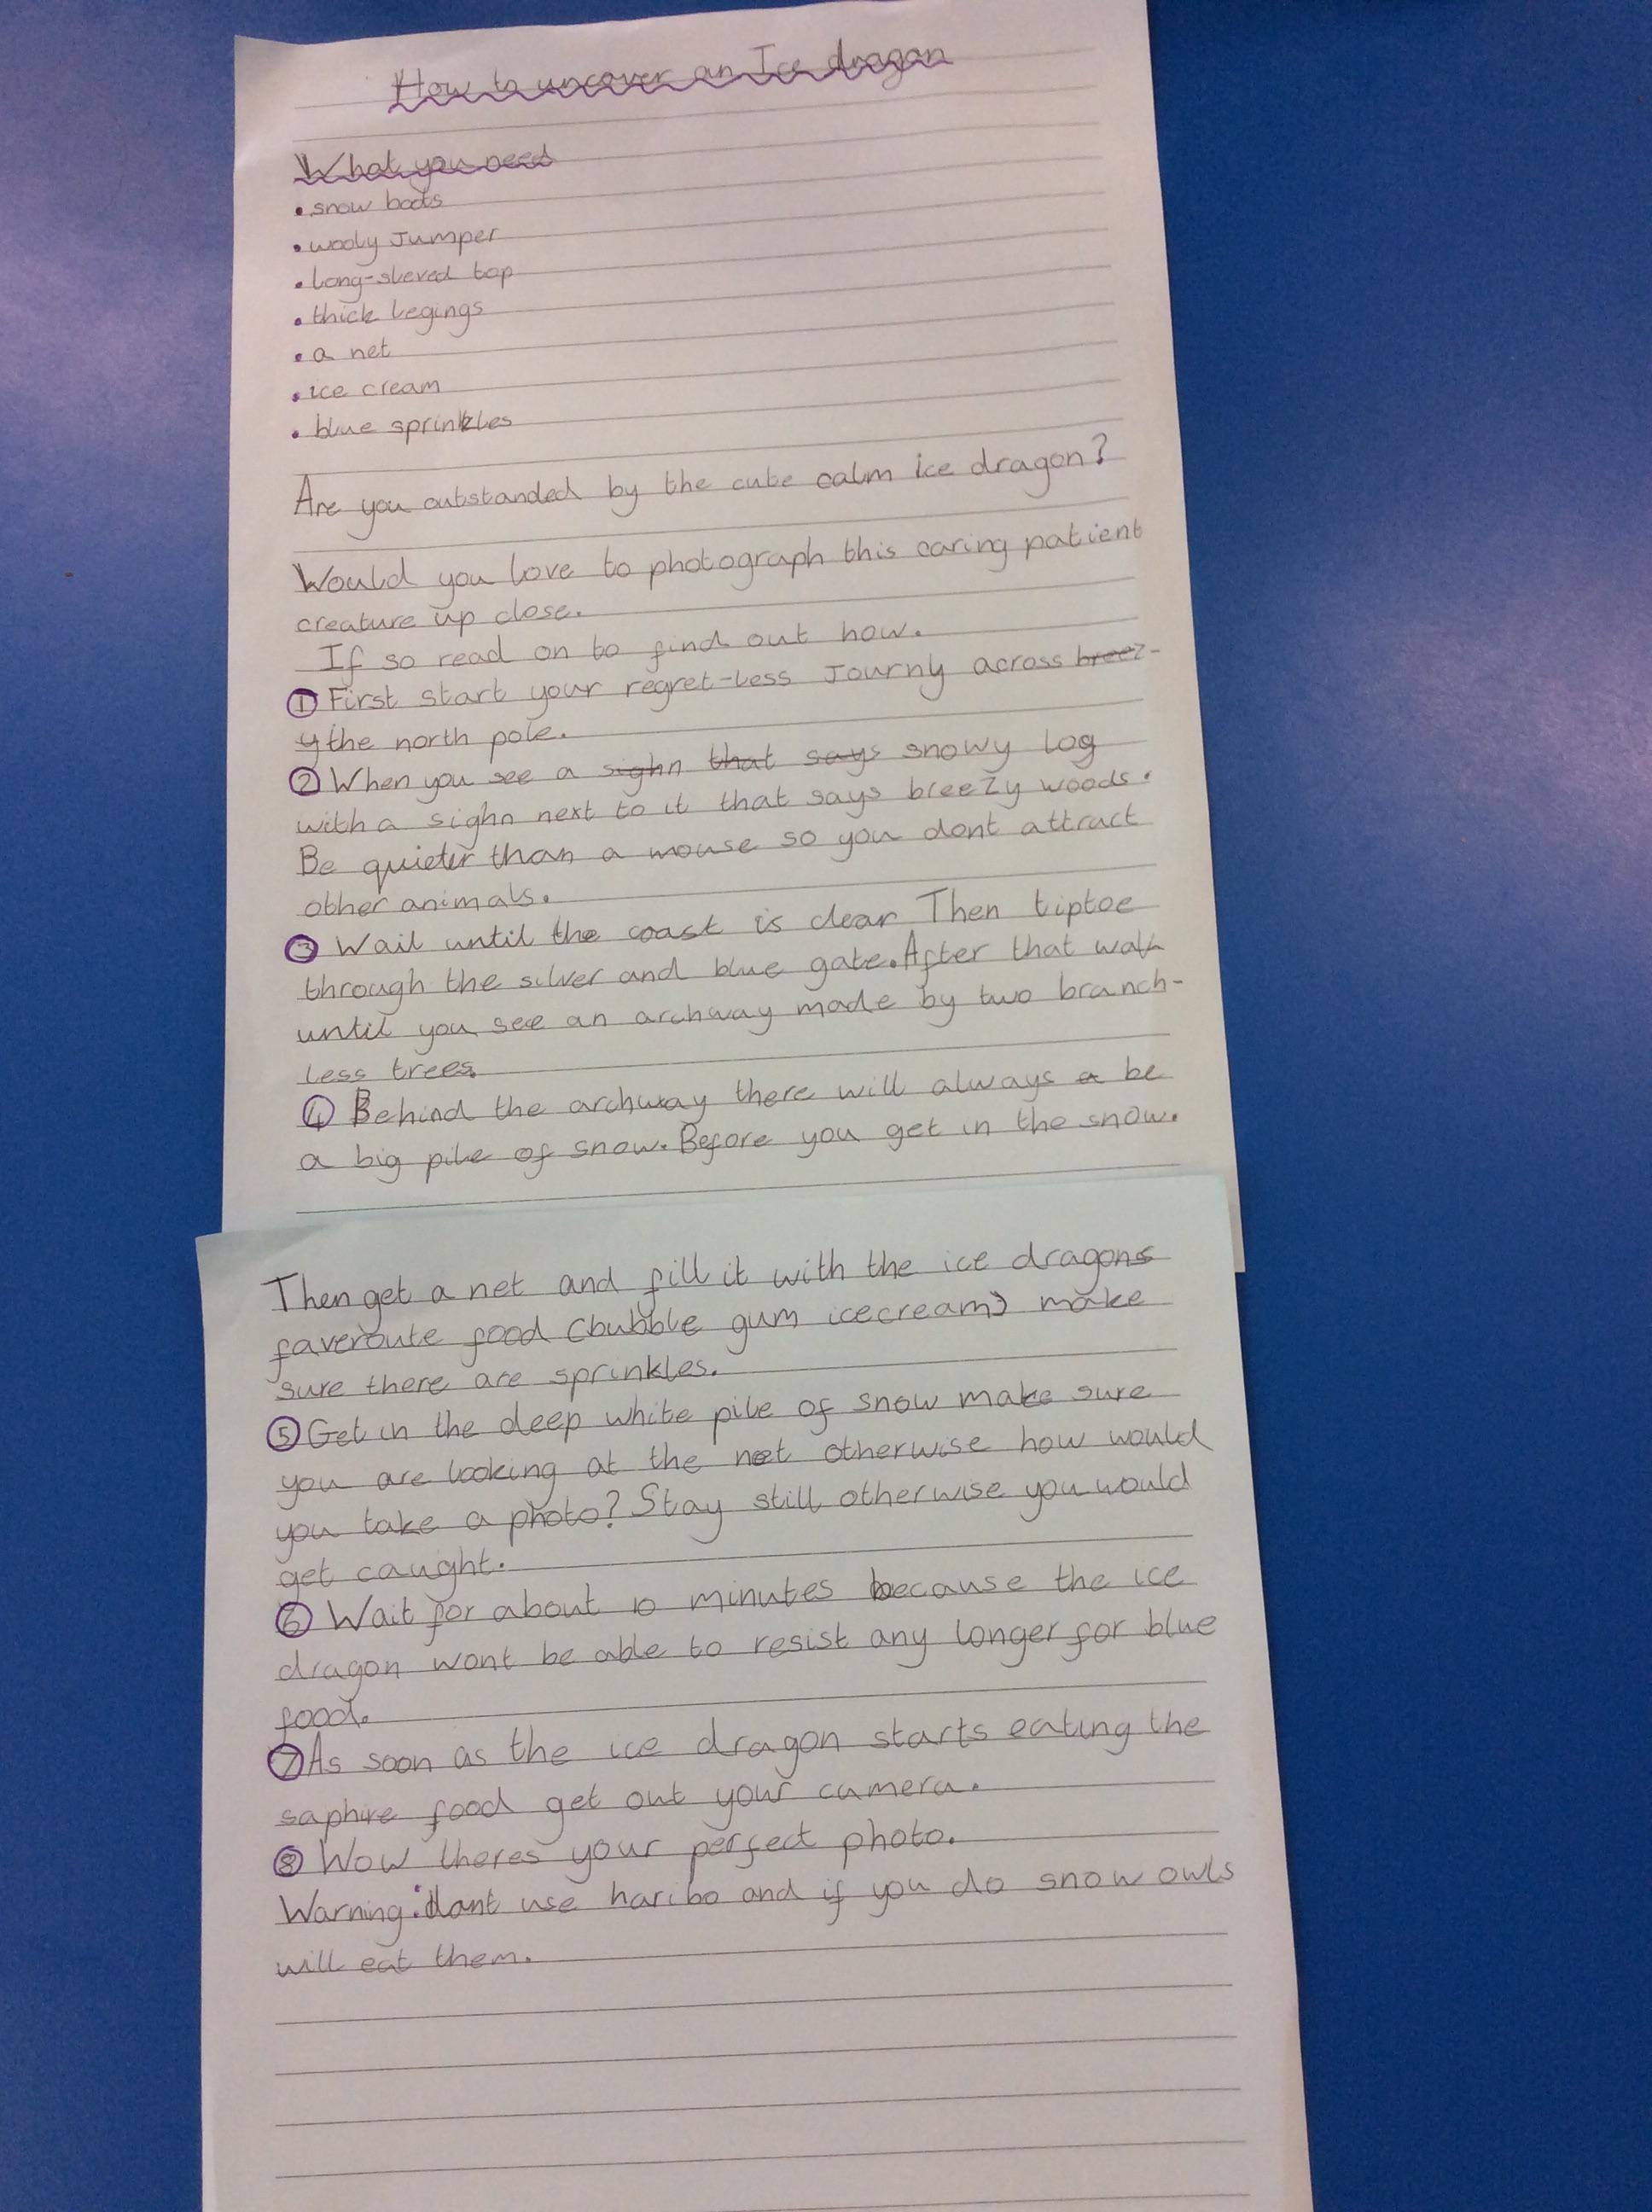 How to uncover an Ice dragon
What you need
• snow boots
• wooly Jumper
• long-sleved top
• thick legings
• a net
• ice cream
• blue sprinkles
Are you outstanded by the cute calm ice dragon?
Would you love to photograph this caring patient
creature up close.
If so read on to find out how.
① First start your regret-less Journy across breez-
y the north pole.
② When you see a sighn that says snowy log
with a sighn next to it that says breezy woods.
Be quieter than a mouse so you dont attract
other animals.
③ Wail until the coast is clear Then tiptoe
through the silver and blue gate. After that walk
until you see an archway made by two branch-
less trees.
④ Behind the archway there will always a be
a big pile of snow. Before you get in the snow.
Then get a net and fill it with the ice dragons
faveroute food (bubble gum icecream) make
sure there are sprinkles.
⑤ Get in the deep white pile of snow make sure
you are looking at the net otherwise how would
you take a photo? Stay still otherwise you would
get caught.
⑥ Wait for about 10 minutes because the ice
dragon wont be able to resist any longer for blue
food.
⑦ As soon as the ice dragon starts eating the
saphire food get out your camera.
⑧ Wow theres your perfect photo.
Warning: dont use haribo and if you do snow owls
will eat them.